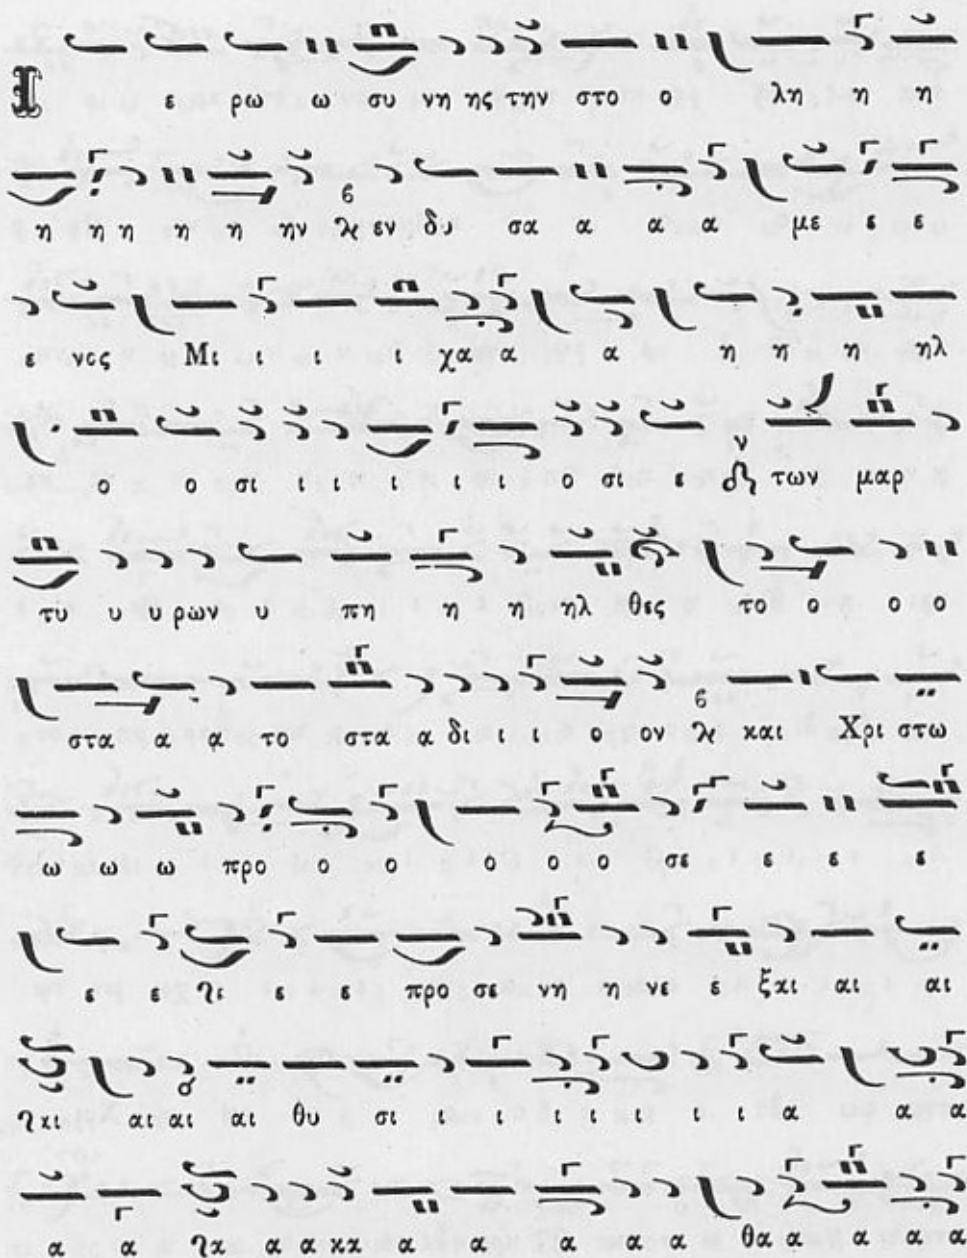 Ι ε ρω ω συ νη ης την στο ο λη η η
η η η η η ην εν δυ σα α α α με ε ε
ε νος Μι ι ι ι χα α α η η η ηλ
ο ο σι ι ι ι ι ι ο σι ε των μαρ
τυ υ υ ρων υ πη η η ηλ θες το ο ο ο
στα α α το στα α δι ι ι ο ον και Χρι στω
ω ω ω προ ο ο ο ο ο σε ε ε ε
ε ε ε ε προ σε νη η νε ε ξαι αι αι
αι αι αι θυ σι ι ι ι ι ι ι ι α α α
α α α α κα α α α α α θα α α α α α